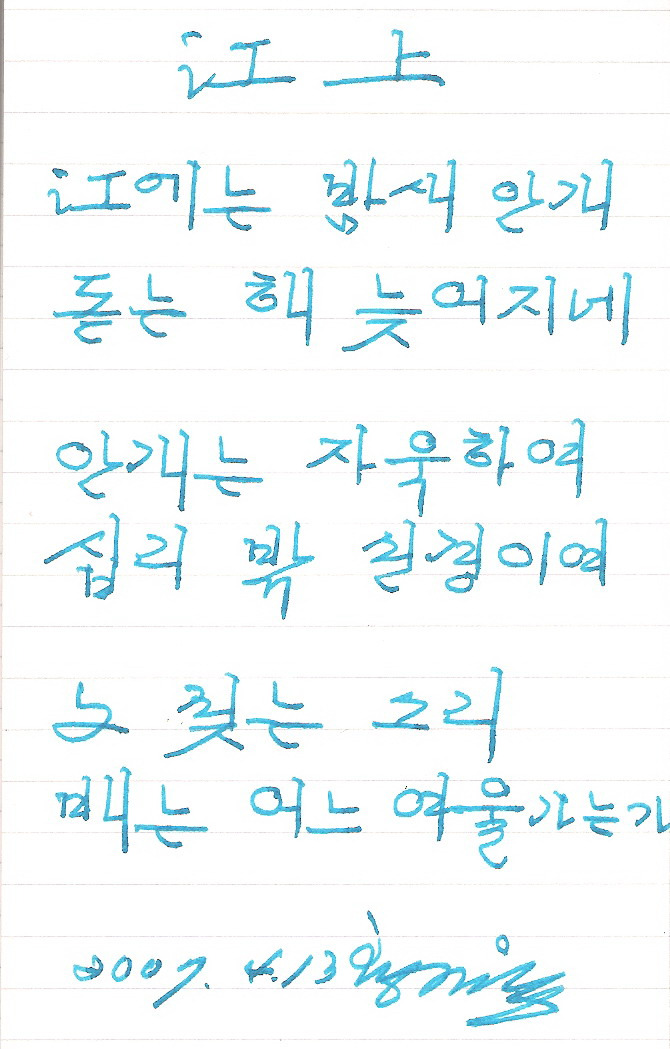 江上
江에는 밤새 안개
돋는 해 늦어지네
안개는 자욱하여
십리 밖 실경이여
노 젖는 소리
배는 어느 여울가는가
2007. 4.13